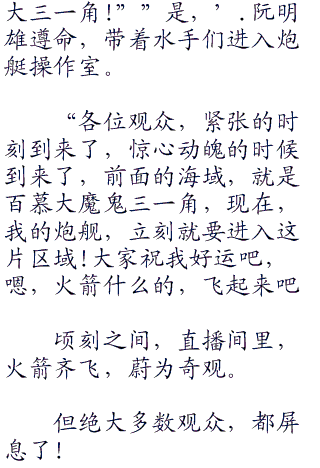 大三一角!””是，’.阮明
雄遵命，带着水手们进入炮
艇操作室。
“各位观众，紧张的时
刻到来了，惊心动魄的时候
到来了，前面的海域，就是
百慕大魔鬼三一角，现在，
我的炮舰，立刻就要进入这
片区域!大家祝我好运吧，
嗯，火箭什么的，飞起来吧
顷刻之间，直播间里，
火箭齐飞，蔚为奇观。
但绝大多数观众，都屏
息了!